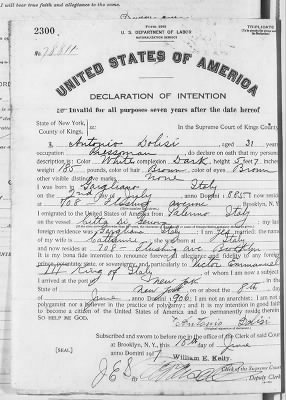 I will bear true faith and allegiance to the same.
2300
Form 2203
U. S. DEPARTMENT OF LABOR
NATURALIZATION SERVICE
TRIPLICATE
UNITED STATES OF AMERICA
DECLARATION OF INTENTION
Invalid for all purposes seven years after the date hereof
State of New York,
County of Kings, ss:
In the Supreme Court of Kings County.
I, Antonio Dolisi aged 31 years,
occupation Pressman, do declare on oath that my personal
description is: Color White complexion Dark height 5 feet 7 inches,
weight 185 pounds, color of hair Brown color of eyes Brown
other visible distinctive marks None
I was born in Italy
on the day of July, anno Domini 1885 now reside
at 708 Flushing avenue Brooklyn, N.Y.
I emigrated to the United States of America from Palermo Italy
on the vessel my last
foreign residence was Italy I am married; the name
of my wife is Catherine; she was born in Italy
and now resides at 708 Flushing ave Brooklyn
It is my bona fide intention to renounce forever all allegiance and fidelity to any foreign
prince, potentate, state, or sovereignty, and particularly to Victor Emmanuel
III King of Italy, of whom I am now a subject
I arrived at the port of New York, in the
State of New York, on or about the 8th day
of June, anno Domini 1906; I am not an anarchist; I am not a
polygamist nor a believer in the practice of polygamy; and it is my intention in good faith
to become a citizen of the United States of America and to permanently reside therein:
SO HELP ME GOD.
Antonio Dolisi
Subscribed and sworn to before me in the office of the Clerk of said Court
at Brooklyn, N. Y., this day of June
anno Domini 191
[SEAL]
William E. Kelly,
Clerk of the Supreme Court
Deputy Clerk